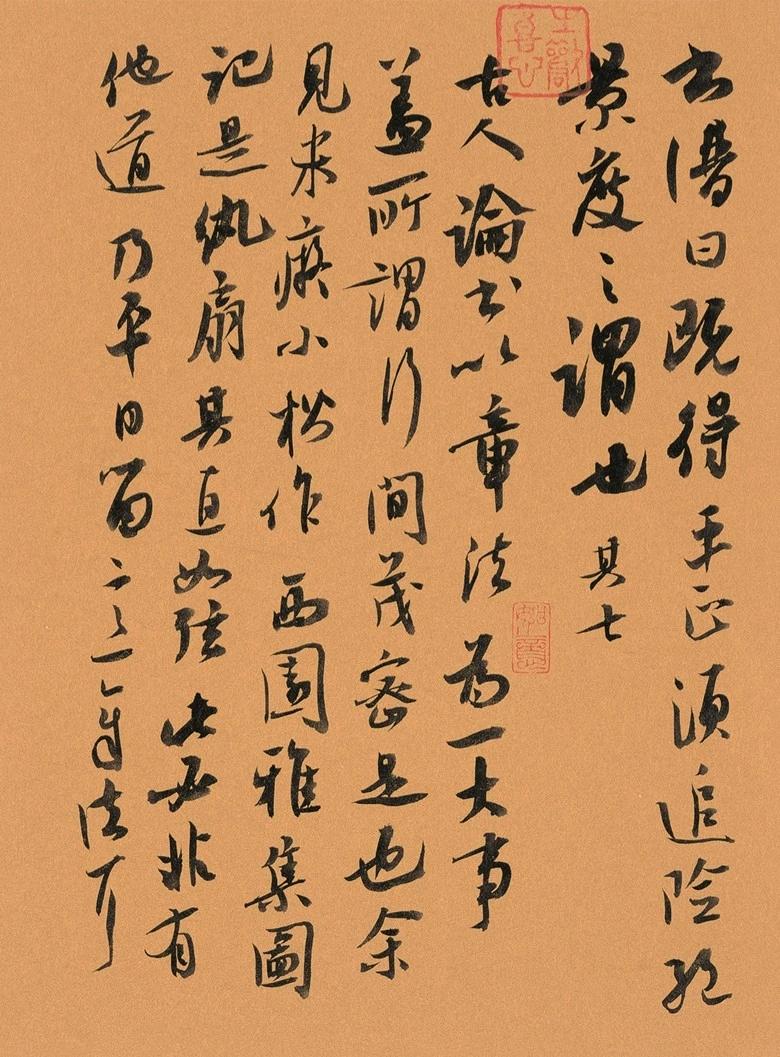 书譜曰既得平正須追險絕
景度之謂也 其七
古人論书以章法為一大事
蓋所謂行間茂密是也余
見米癡小楷作西園雅集圖
記是紈扇其直如弦此必非有
他道乃平日留意章法耳